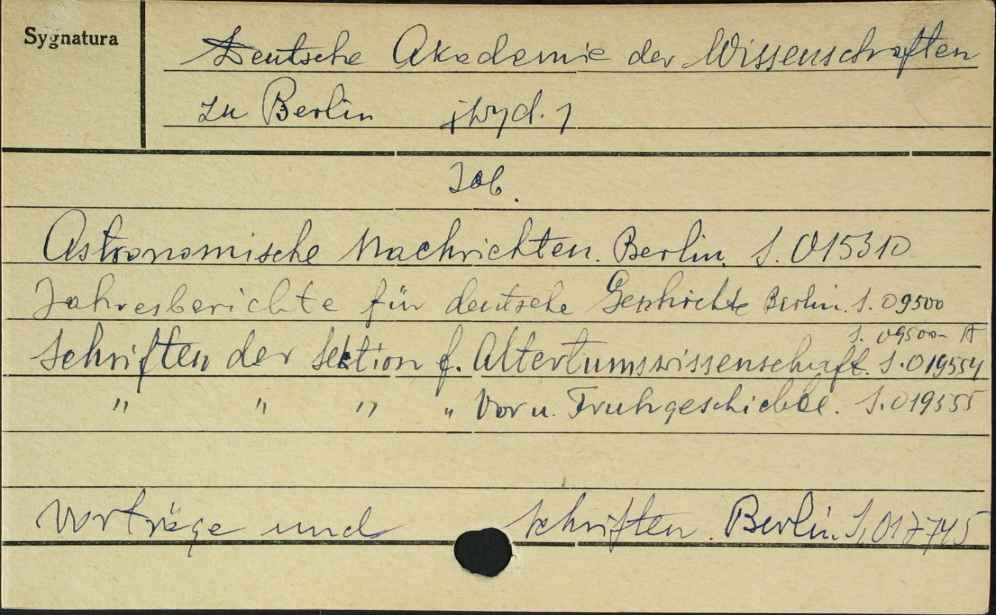 Sygnatura
Deutsche Akademie der Wissenschaften
zu Berlin [wyd.]
Zob.
Astronomische Nachrichten. Berlin. S. 015310
Jahresberichte für deutsche Geschichte Berlin. S. 09500
S. 09500-A
Schriften der Sektion f. Altertumswissenschaft. S. 019554
" " " " Vor u. Fruhgeschichte. S. 019555
Vorträge und Schriften. Berlin. S. 017745